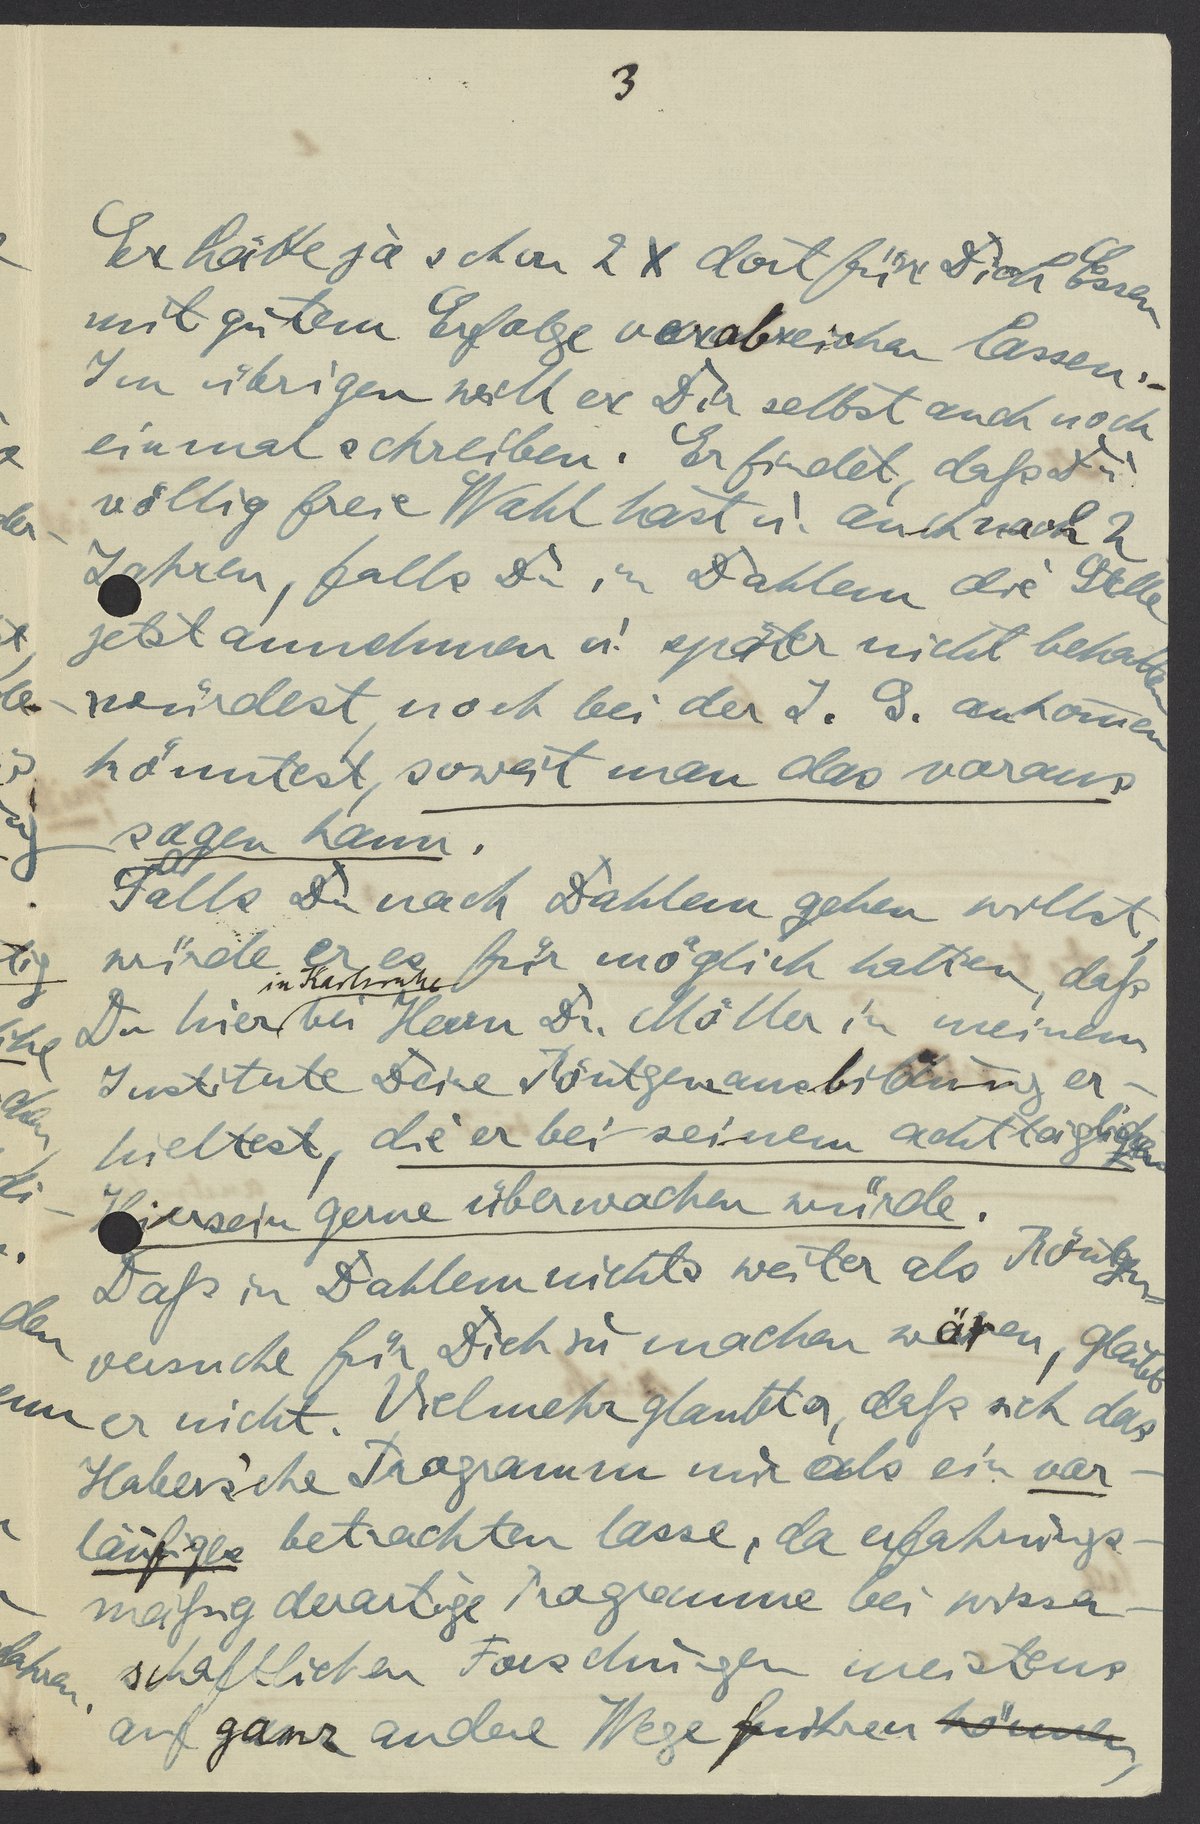 3
Er hätte ja schon 2 X dort für Dich Essen
mit gutem Erfolge verabreichen lassen.-
Im übrigen will er Dir selbst auch noch
einmal schreiben. Er findet, daß Du
völlig freie Wahl hast u. auch nach 2
Jahren, falls Du in Dahlem die Stelle
jetzt annehmen u. später nicht behalten
würdest, noch bei der I. G. ankom̅en
könntest, soweit man das voraus
sagen kann.
Falls Du nach Dahlem gehen willst,
würde er es für möglich halten, daß
in Karlsruhe
Du hier bei Herrn Dr. Möller in meinem
Institute Deine Röntgenausbildung er-
hieltest, die er bei seinem achttäglichen
Hiersein gerne überwachen würde.
Daß in Dahlem nichts weiter als Röntgen-
versuche für Dich zu machen wären, glaubt
er nicht. Vielmehr glaubt er, daß sich das
Haber'sche Programm nur als ein vor-
läufiges betrachten lasse, da erfahrungs-
mäßig derartige Programme bei wissen-
schaftlichen Forschungen meistens
auf ganz andere Wege führen können,